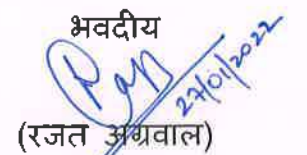 भवदीय
27/01/2022
(रजत अग्रवाल)